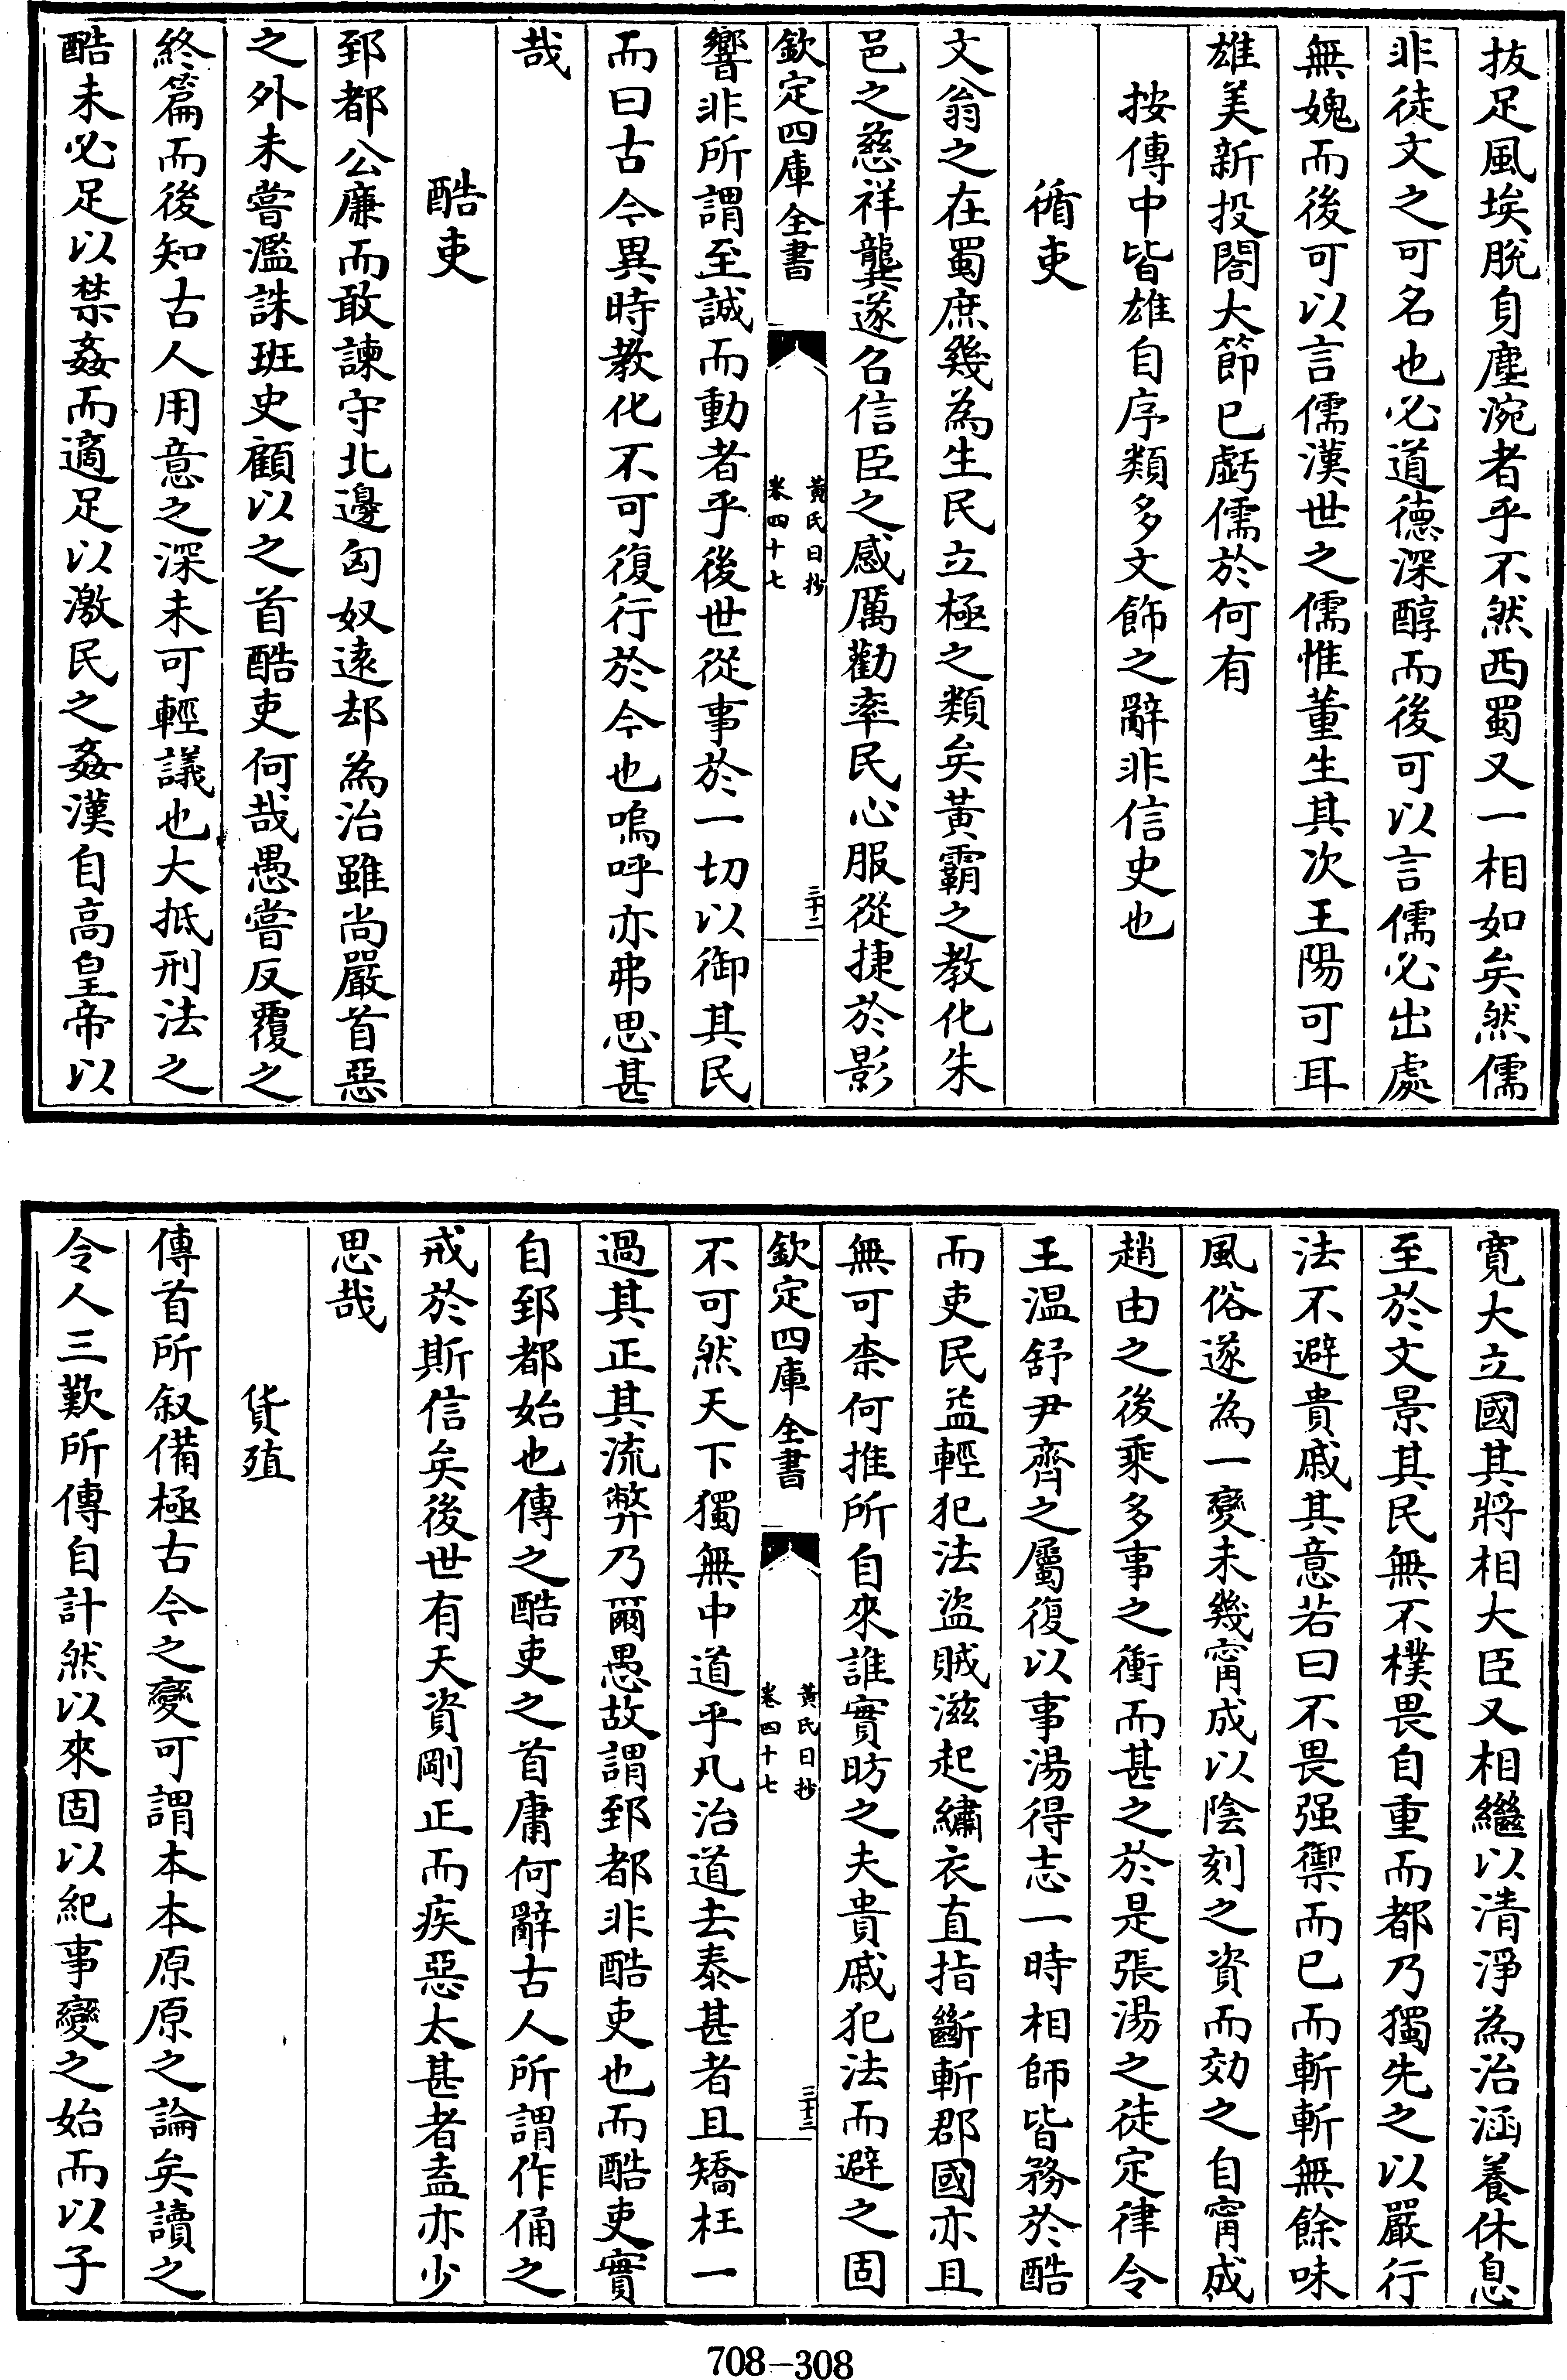 拔足風埃脫身塵涴者乎不然西蜀又一相如矣然儒
非徒文之可名也必道德深醇而後可以言儒必出處
無媿而後可以言儒漢世之儒惟董生其次王陽可耳
雄美新投閣大節已虧儒於何有
按傳中皆雄自序類多文飾之辭非信史也
循吏
文翁之在蜀庶幾為生民立極之類矣黃霸之教化朱
邑之慈祥龔遂召信臣之感厲勸率民心服從捷於影
欽定四庫全書
黃氏日抄
卷四十七
三十二
響非所謂至誠而動者乎後世從事於一切以御其民
而曰古今異時教化不可復行於今也嗚呼亦弗思甚
哉
酷吏
郅都公廉而敢諫守北邊匈奴遠却為治雖尚嚴首惡
之外未嘗濫誅班史顧以之首酷吏何哉愚嘗反覆之
終篇而後知古人用意之深未可輕議也大抵刑法之
酷未必足以禁姦而適足以激民之姦漢自高皇帝以
寛大立國其將相大臣又相繼以清淨為治涵養休息
至於文景其民無不樸畏自重而都乃獨先之以嚴行
法不避貴戚其意若曰不畏强禦而已而斬斬無餘味
風俗遂為一變未幾甯成以陰刻之資而効之自甯成
趙由之後乘多事之衝而甚之於是張湯之徒定律令
王温舒尹齊之屬復以事湯得志一時相師皆務於酷
而吏民益輕犯法盜賊滋起繡衣直指斷斬郡國亦且
無可柰何推所自來誰實昉之夫貴戚犯法而避之固
欽定四庫全書
黃氏日抄
卷四十七
三十三
不可然天下獨無中道乎凡治道去泰甚者且矯枉一
過其正其流弊乃爾愚故謂郅都非酷吏也而酷吏實
自郅都始也傳之酷吏之首庸何辭古人所謂作俑之
戒於斯信矣後世有天資剛正而疾惡太甚者盍亦少
思哉
貨殖
傳首所叙備極古今之變可謂本本原原之論矣讀之
令人三歎所傳自計然以來固以紀事變之始而以子
708—308